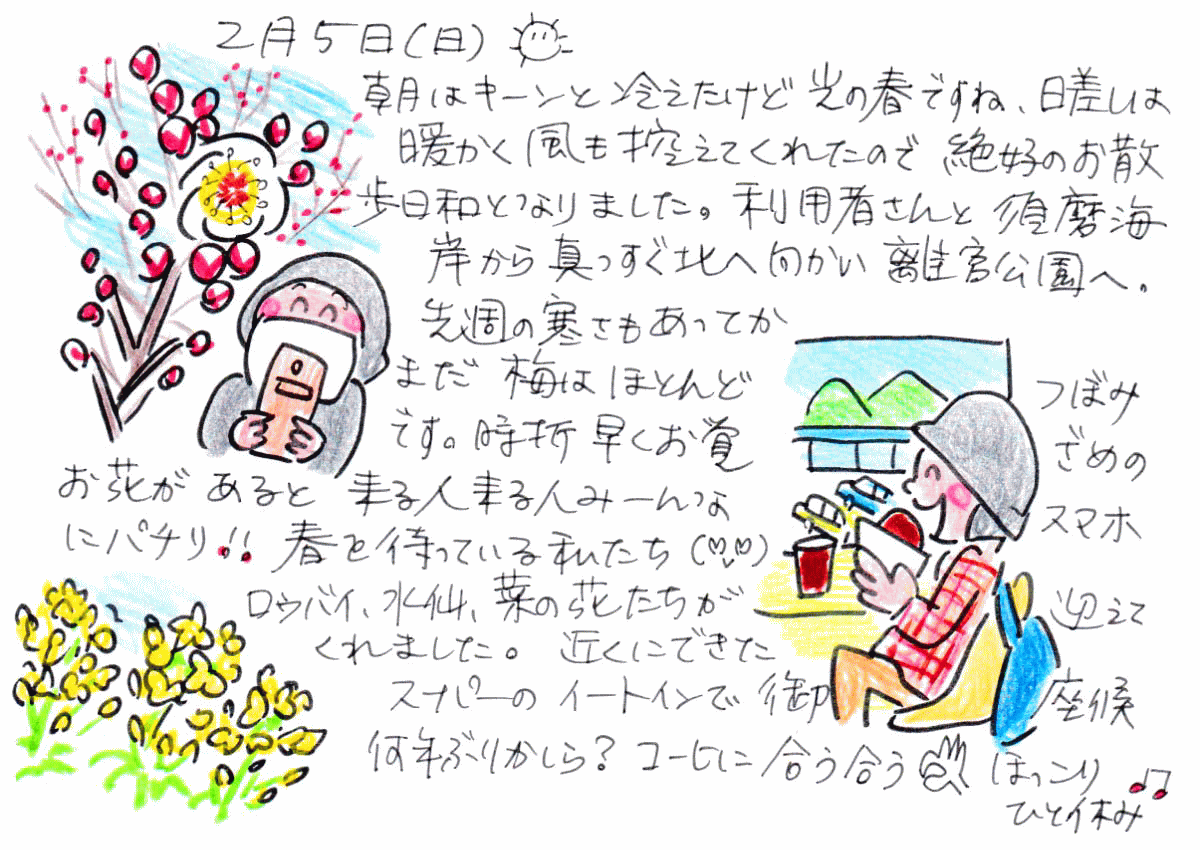 2月5日(日)
朝はキーンと冷えたけど光の春ですね、日差しは
暖かく風も控えてくれたので絶好のお散
歩日和となりました。利用者さんと須磨海
岸から真っすぐ北へ向かい離宮公園へ。
先週の寒さもあってか
まだ梅はほとんど つぼみ
です。時折早くお覚 ざめの
お花があると来る人来る人みーんな スマホ
にパチリ!!春を待っている私たち(♡♡)
ロウバイ、水仙、菜の花たちが 迎えて
くれました。近くにできた
スーパーのイートインで御 座候
何年ぶりかしら?コーヒーに合う合う ほっこり
ひと休み♫